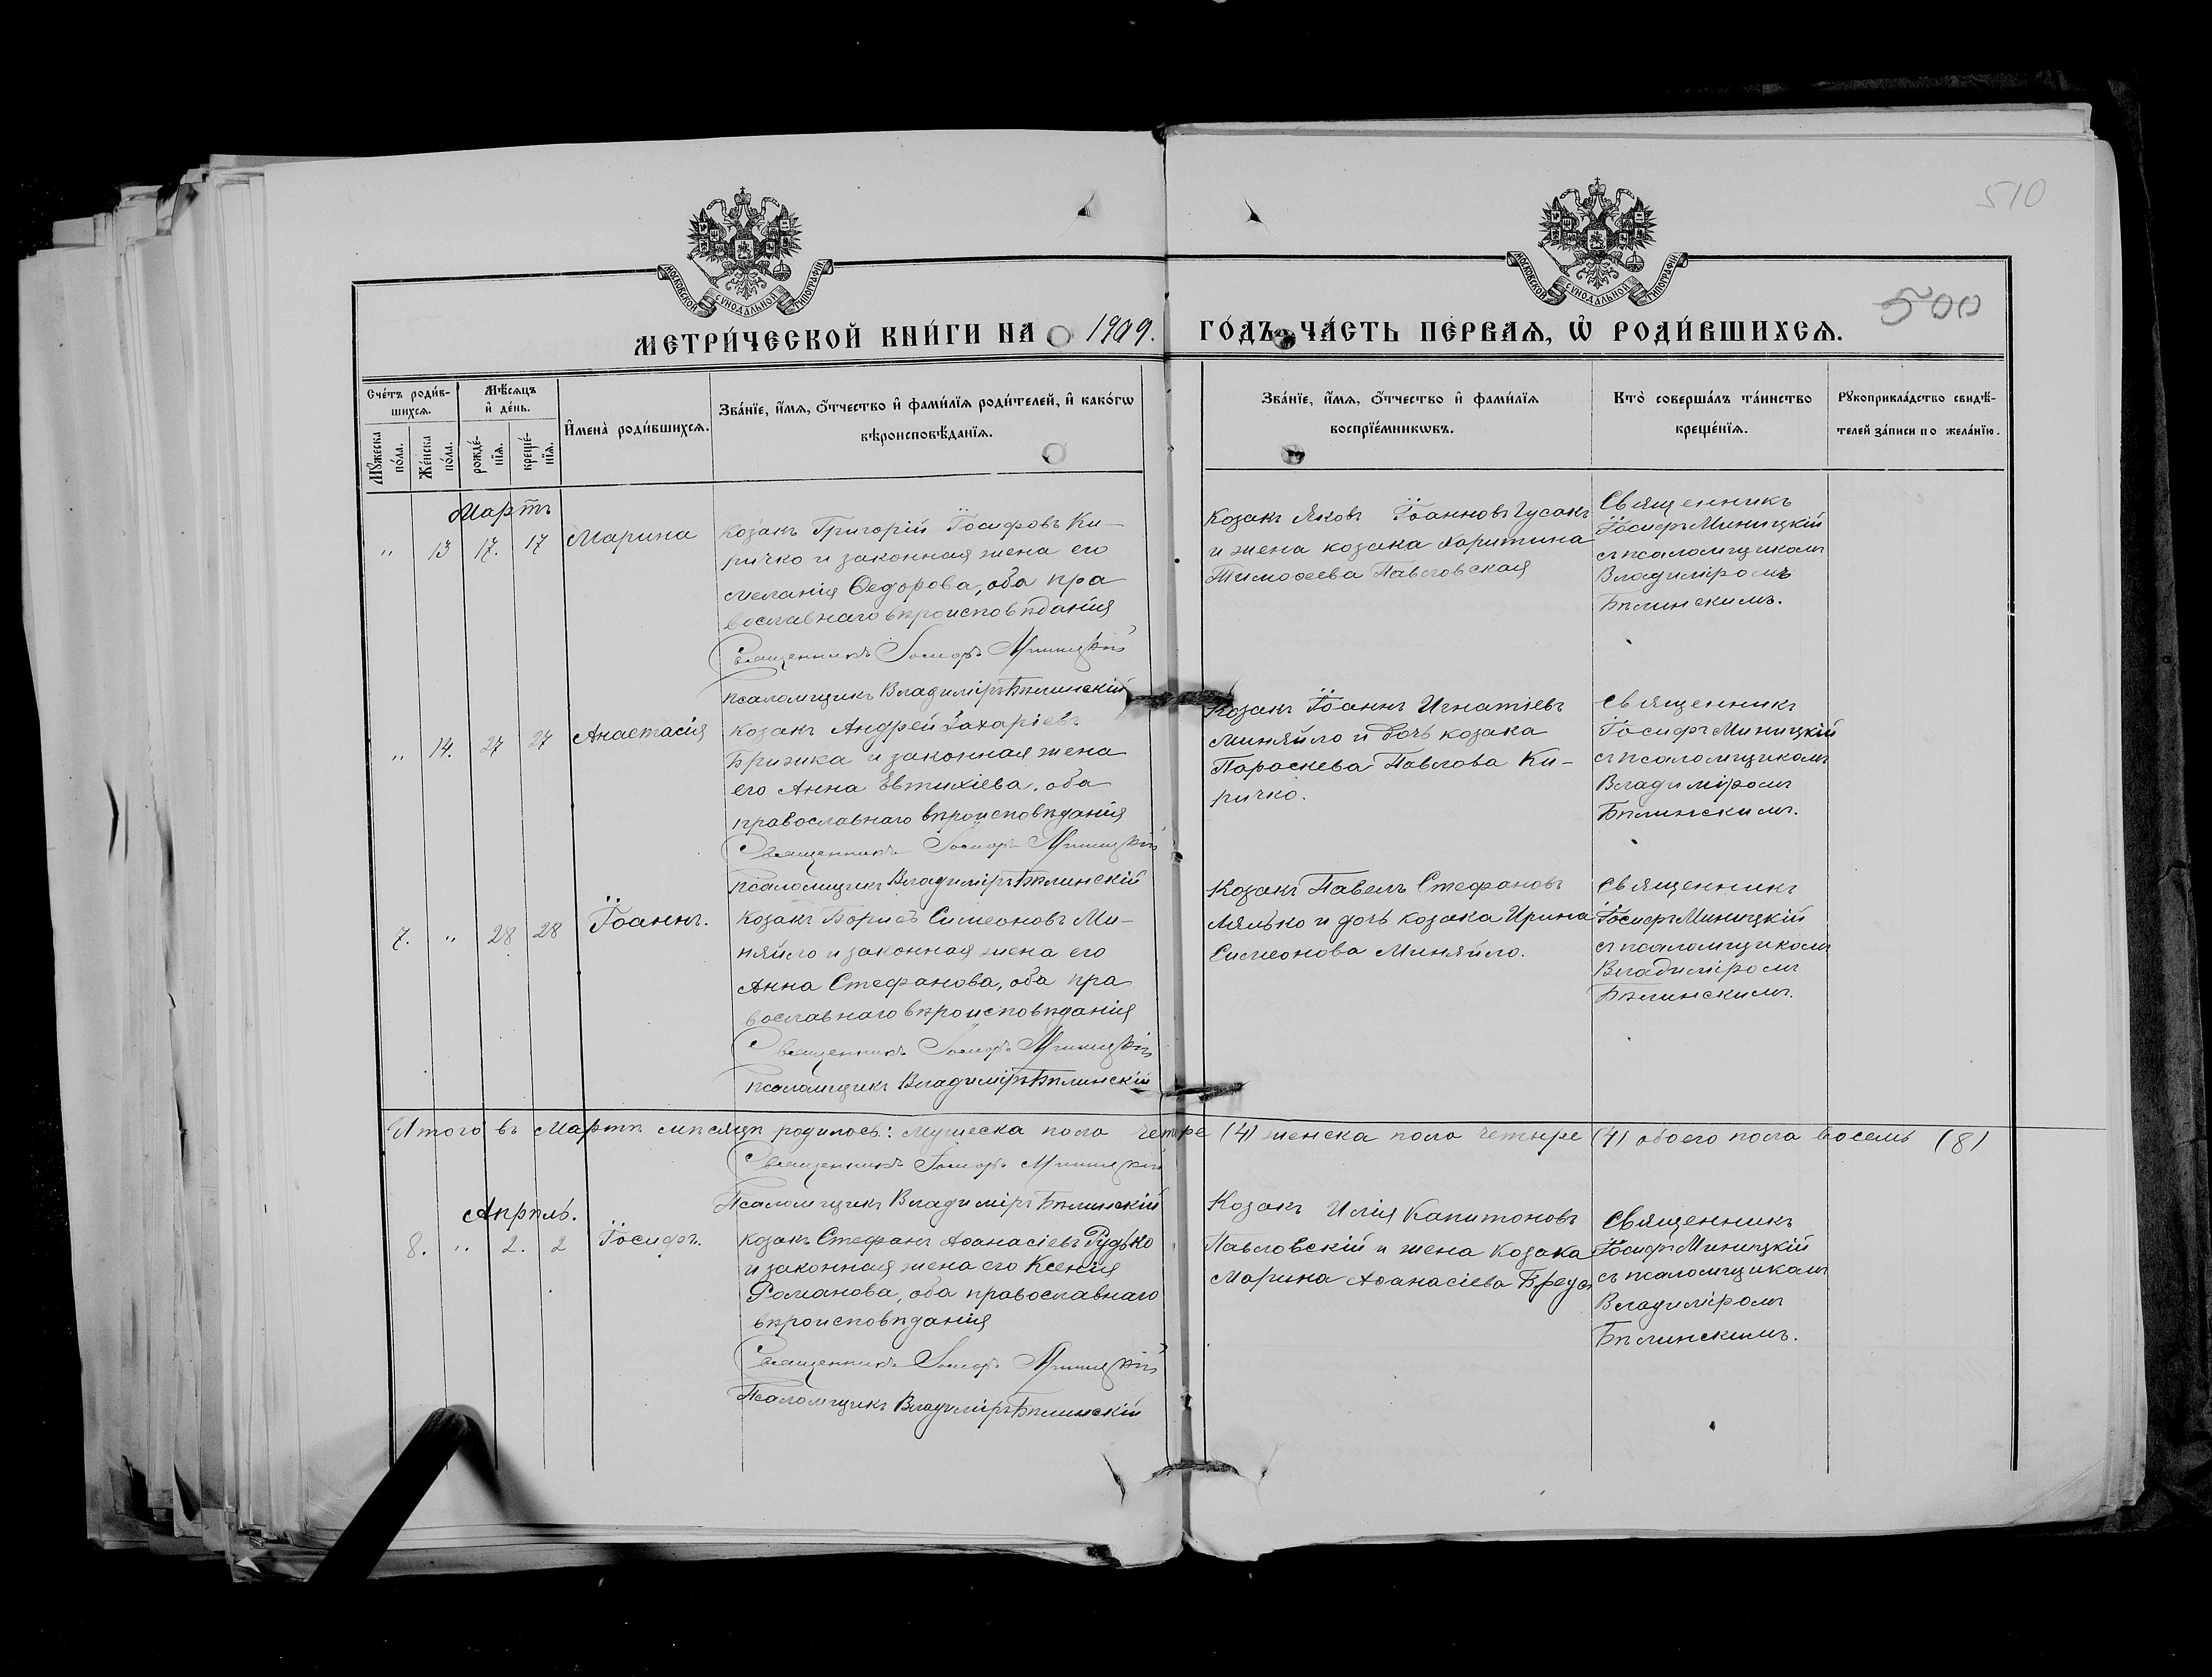 510
500
МОСКОВСКОЙ СѴНОДАЛЬНОЙ ТИПОГРАФІИ
МОСКОВСКОЙ СѴНОДАЛЬНОЙ ТИПОГРАФІИ
МЕТРИ́ЧЕСКОЙ КНИ́ГИ НА 1909. ГО́ДЪ, ЧА́СТЬ ПЕ́РВАѦ, Ѡ҆ РОДИ́ВШИХСѦ.
Сче́тъ роди́в-
шихсѧ.
Мꙋ́жеска по́ла.
Же́нска по́ла.
Мѣ́сѧцъ
и҆ де́нь.
рожде́-
нїѧ.
креще́-
нїѧ.
И҆мена̀ роди́вшихсѧ.
Зва́нїе, и҆́мѧ, ѻ҆́тчество и҆ фами́лїѧ роди́телей, и҆ како́гѡ
вѣроисповѣ́данїѧ.
Зва́нїе, и҆́мѧ, ѻ҆́тчество и҆ фами́лїѧ
воспрїе́мникѡвъ.
Кто̀ соверша́лъ та́инство
креще́нїѧ.
Рꙋкоприкла́дство свидѣ́-
телей за́писи по жела́нїю.
Мартъ
" 13 17. 17 Марина
Козакъ Григорій Іосифовъ Ки-
ричко и законная жена его
Меланія Ѳедорова, оба пра
вославнаго вѣроисповѣданія
Священникъ Іосифъ Миницкій
Псаломщикъ Владиміръ Бѣлинскій
Козакъ Яковъ Іоанновъ Гусакъ
и жена козака Харитина
Тимоѳеева Павловская
Священникъ
Іосифъ Миницкій
съ псаломщикомъ
Владиміромъ
Бѣлинскимъ.
" 14. 27 27 Анастасія
Козакъ Андрей Захаріевъ
Брижика и законная жена
его Анна Евтихіева, оба
православнаго вѣроисповѣданія
Священникъ Іосифъ Миницкій
Псаломщикъ Владиміръ Бѣлинскій
Козакъ Іоаннъ Игнатіевъ
Миняйло и дочь козака
Параскева Павлова Ки-
ричко.
Священникъ
Іосифъ Миницкій
съ псаломщикомъ
Владиміромъ
Бѣлинскимъ.
7. " 28 28 Іоаннъ.
Козакъ Борисъ Симеоновъ Ми-
няйло и законная жена его
Анна Стефанова, оба пра
вославнаго вѣроисповѣданія
Священникъ Іосифъ Миницкій
Псаломщикъ Владиміръ Бѣлинскій
Козакъ Павелъ Стефановъ
Лялько и дочь козака Ирина
Симеонова Миняйло.
Священникъ
Іосифъ Миницкій
съ псаломщикомъ
Владиміромъ
Бѣлинскимъ.
Итого въ Мартѣ мѣсяцѣ родилось: мужеска пола четыре (4) женска пола четыре (4) обоего пола восемь (8)
Священникъ Іосифъ Миницкій
Псаломщикъ Владиміръ Бѣлинскій
Апрѣль.
8. " 2. 2 Іосифъ.
Козакъ Стефанъ Аѳанасіевъ Рудько
и законная жена его Ксенія
Романова, оба православнаго
вѣроисповѣданія
Священникъ Іосифъ Миницкій
Псаломщикъ Владиміръ Бѣлинскій
Козакъ Илія Капитоновъ
Павловскій и жена козака
Марина Аѳанасіева Бреусъ
Священникъ
Іосифъ Миницкій
съ псаломщикомъ
Владиміромъ
Бѣлинскимъ.